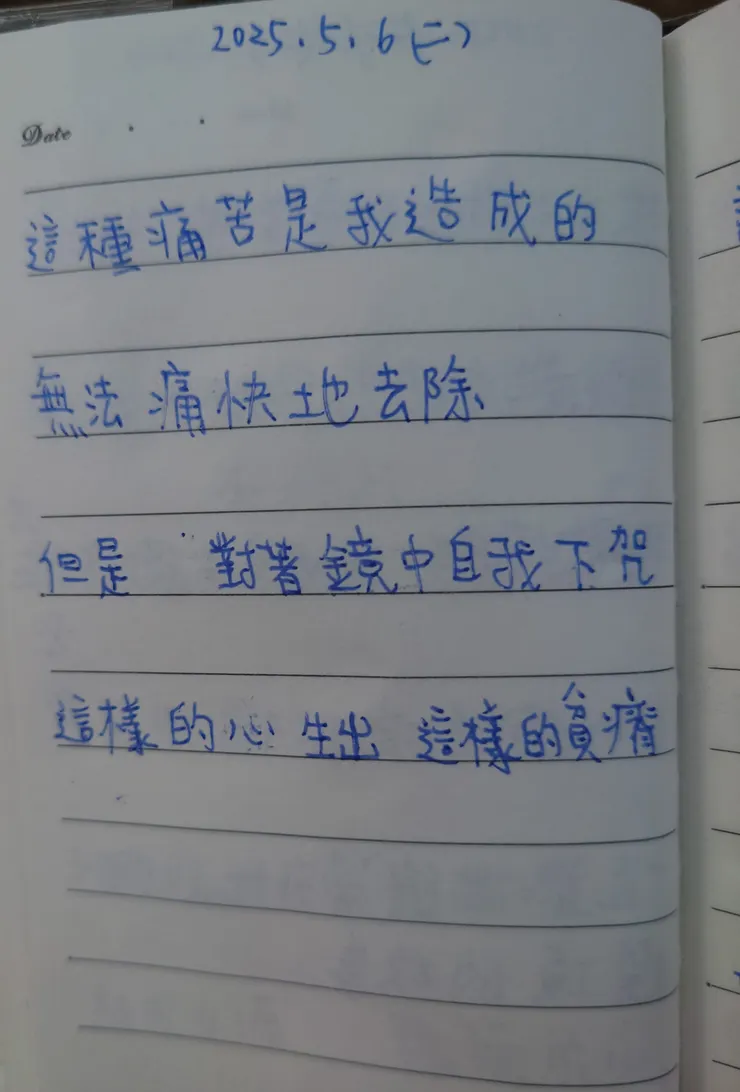 2025.5.6(二)
Date
這種痛苦是我造成的
無法痛快地去除
但是 對著鏡中自我下咒
這樣的心生出 這樣的貧瘠